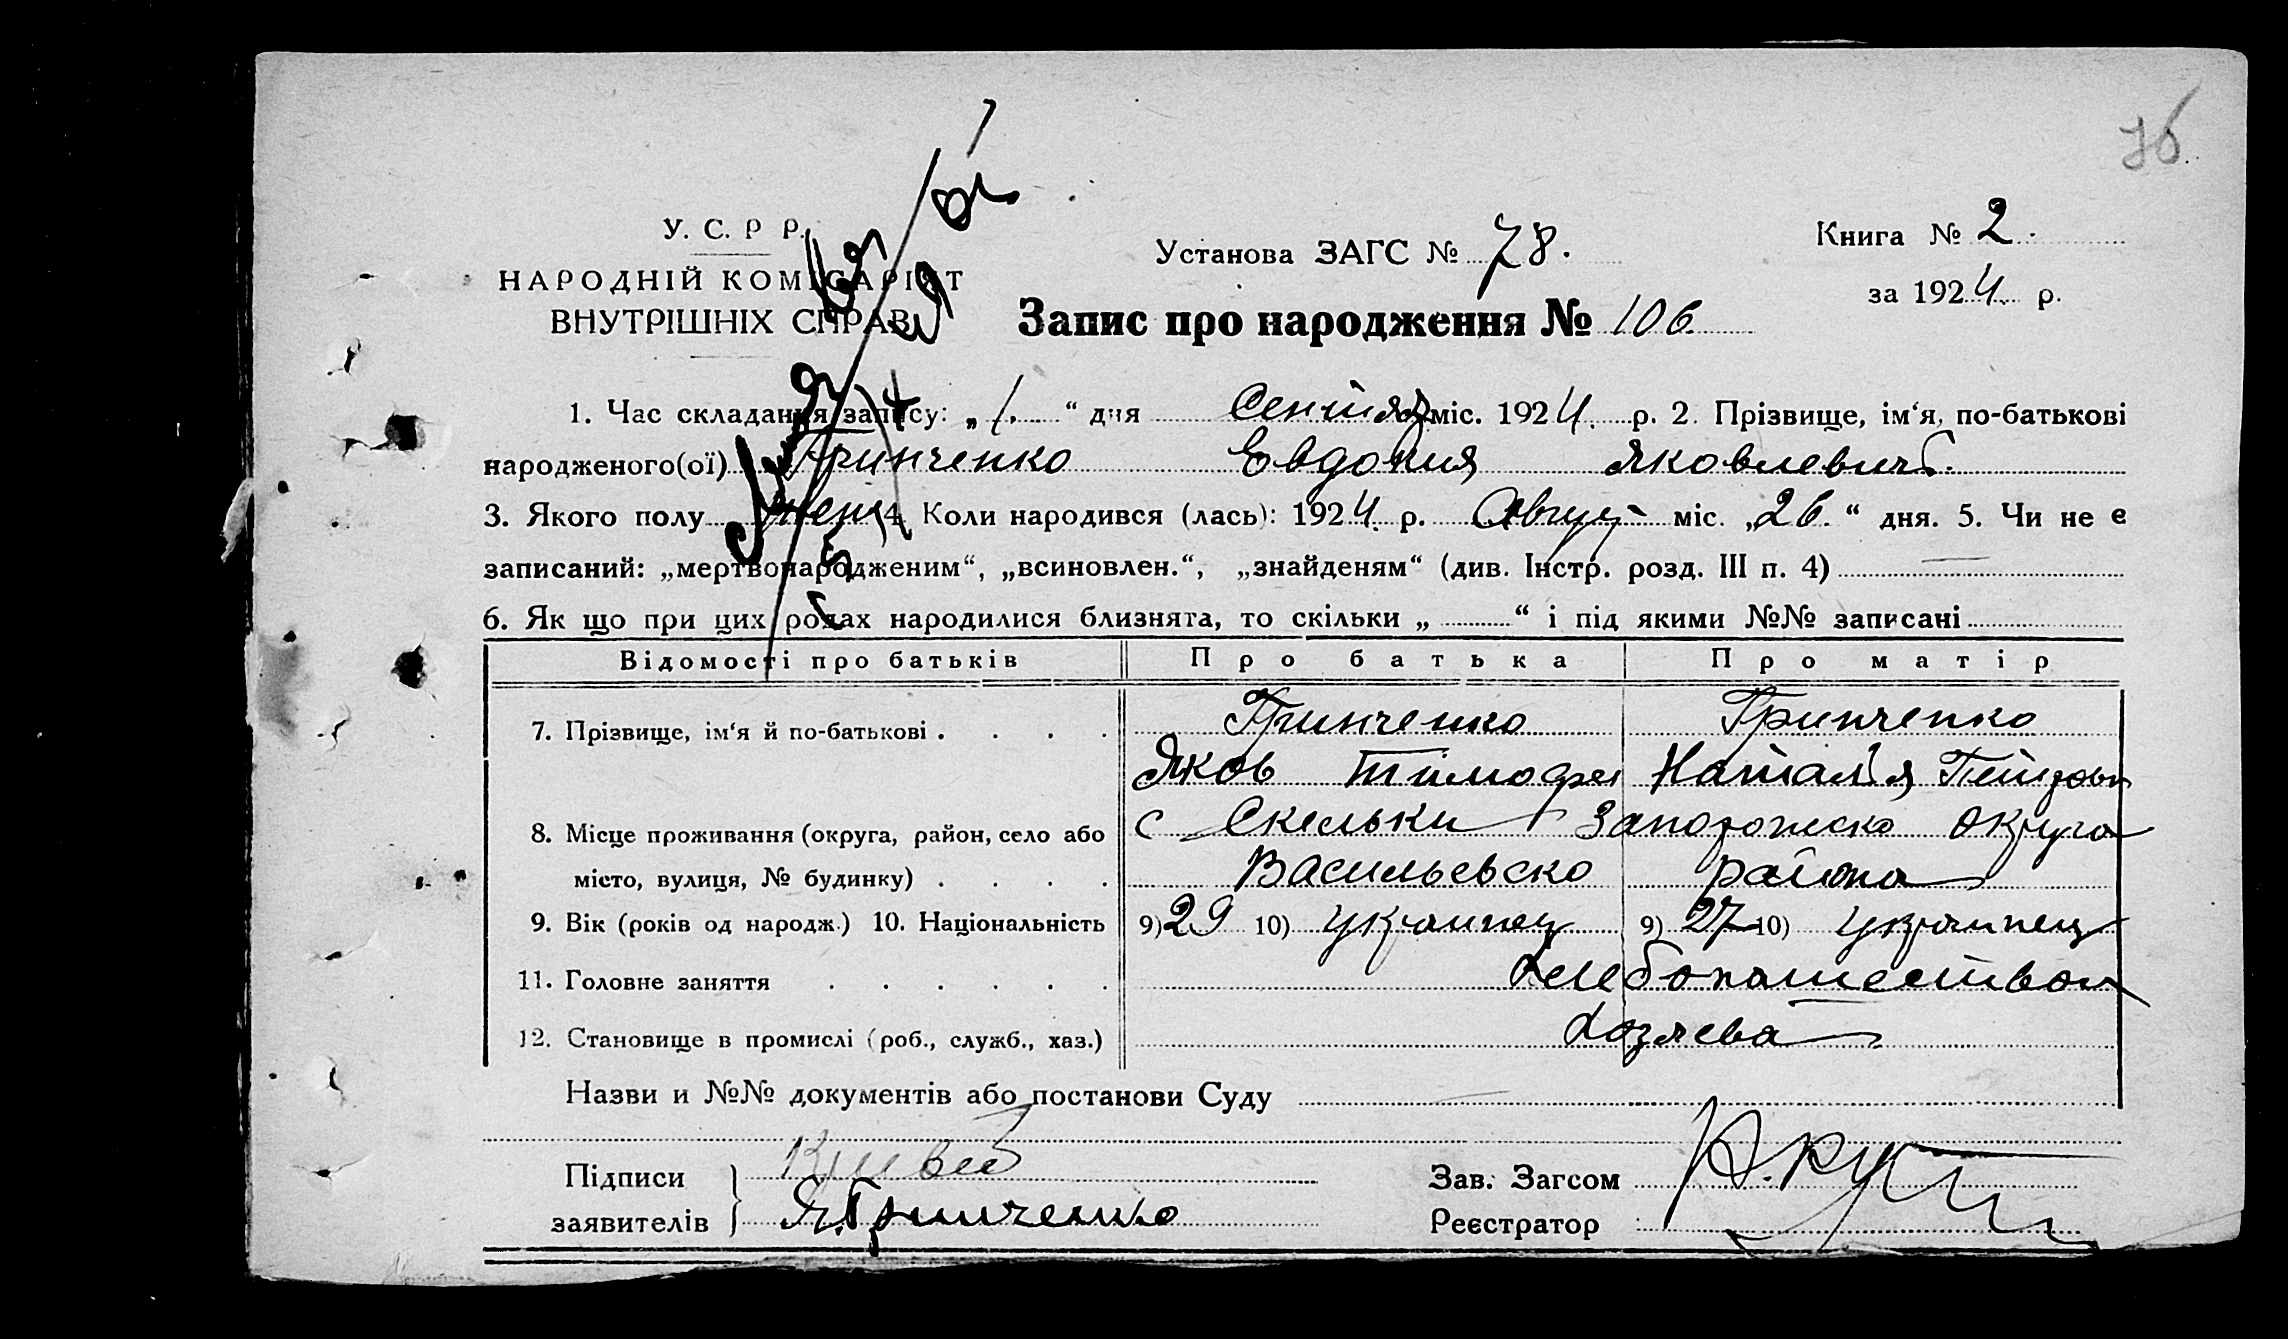 76
У. С. Р Р.
НАРОДНІЙ КОМІСАРІЯТ
ВНУТРІШНІХ СПРАВ
Установа ЗАГС № 78.
Книга № 2.
за 1924 р.
Запис про народження № 106
1. Час складання запису: „ 1. “ дня Сентяб міс. 1924 р. 2. Прізвище, ім‘я, по-батькові
народженого(ої) Гринченко Евдокия Яковлевич
3. Якого полу жен 4. Коли народився (лась): 1924 р. Август міс. „26.“ дня. 5. Чи не є
записаний: „мертвонародженим“, „всиновлен.“, „знайденям“ (див. Інстр. розд. III п. 4)
6. Як що при цих родах народилися близнята, то скільки „ “ і під якими №№ записані
Відомості про батьків Про батька Про матір
7. Прізвище, ім‘я й по-батькові . . . . Гринченко Гринченко
Яков Тимофеи Наталья
8. Місце проживання (округа, район, село або с Скельки Запорожско округа
місто, вулиця, № будинку) . . . . Васильевско района
9. Вік (років од народж.) 10. Національність 9) 29 10) украинец 9) 27 10) украинец
11. Головне заняття . . . . . . Хлебопашеством
12. Становище в промислі (роб., служб., хаз.) Хозяева
Назви и №№ документів або постанови Суду
Підписи
заявителів Я. Гринченко
Зав. Загсом
Реєстратор